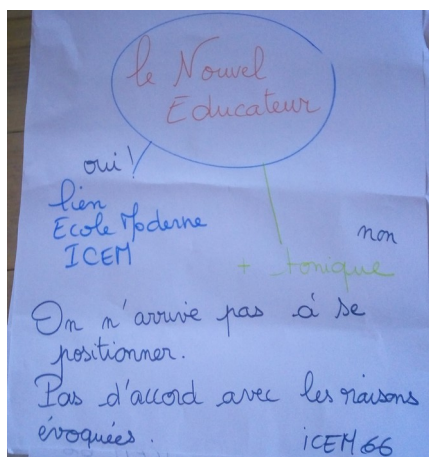 le Nouvel
Educateur
oui !
lien
Ecole Moderne
ICEM
non
+ tonique
On n'arrive pas à se
positionner.
Pas d'accord avec les raisons
évoquées.
iCEM 66